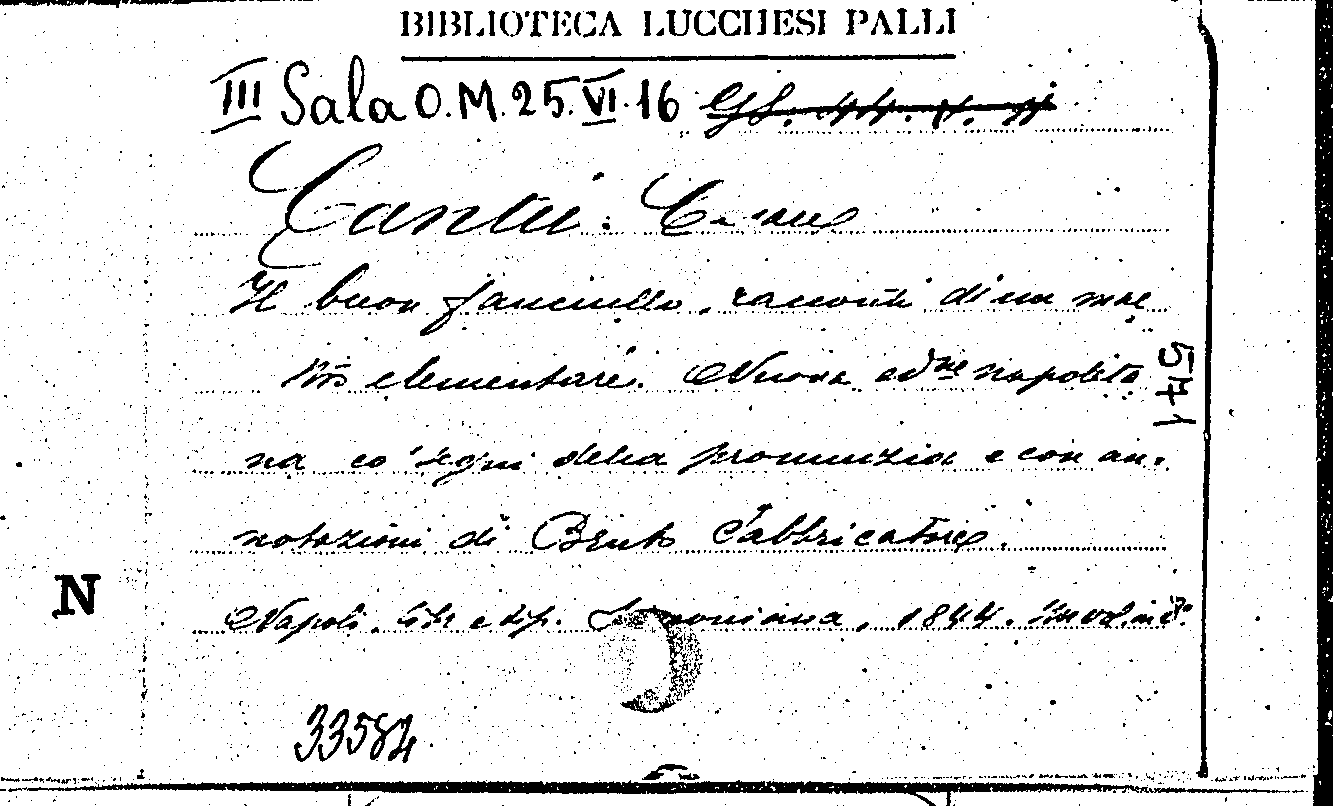 BIBLIOTECA LUCCHESI PALLI
III Sala O. M. 25. VI. 16 GS. 44.
Cantù. Cesare
Il buon fanciullo, racconti di un mae
stro elementare. Nuova ed.ne napolita
na co' segni della pronunzia e con an-
notazioni di Bruto Fabbricatore.
Napoli, libr e tip. Simoniana, 1844. Un vol. in 8°
1745
N
33584